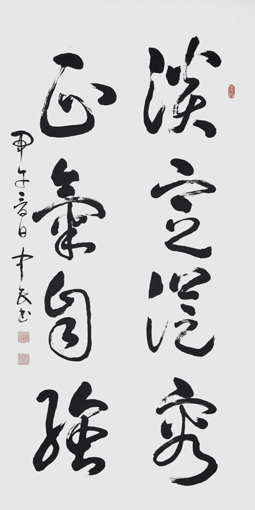 淡定從容
正氣自強
甲午春日中民书